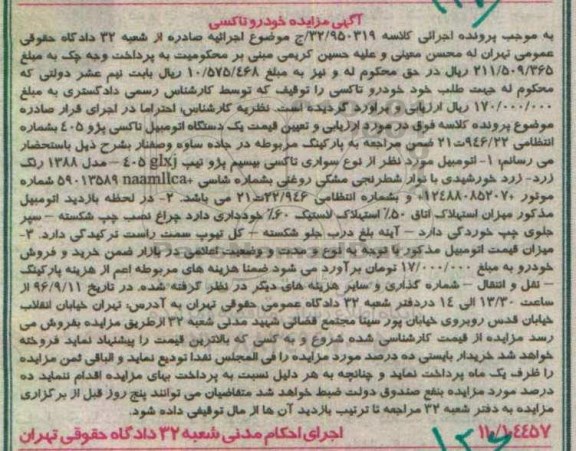 آگهی مزایده خودرو تاکسی
به موجب پرونده اجرائی کلاسه ۳۲/۹۵۰۳۱۹/ج موضوع اجرائیه صادره از شعبه ۳۲ دادگاه حقوقی
عمومی تهران له محسن معینی و علیه حسین کریمی مبنی بر محکومیت به پرداخت وجه چک به مبلغ
۲۱۱/۵۰۹/۳۶۵ ریال در حق محکوم له و نیز به مبلغ ۱۰/۵۷۵/۴۶۸ ریال بابت نیم عشر دولتی که
محکوم له جهت طلب خود خودرو تاکسی را توقیف که توسط کارشناس رسمی دادگستری به مبلغ
۱۷۰/۰۰۰/۰۰۰ ریال ارزیابی و براورد گردیده است. نظریه کارشناس: احتراما در اجرای قرار صادره
موضوع پرونده کلاسه فوق در مورد ارزیابی و تعیین قیمت یک دستگاه اتومبیل تاکسی پژو ۴۰۵ بشماره
انتظامی ۹۴۶/۲۲ت۲۱ ضمن مراجعه به پارکینگ مربوطه در جاده ساوه وصفنار بشرح ذیل باستحضار
می رسانم: ۱- اتومبیل مورد نظر از نوع سواری تاکسی بیسیم پژو تیپ glxj ۴۰۵ – مدل ۱۳۸۸ رنگ
زرد- زرد خورشیدی با نوار شطرنجی مشکی روغنی بشماره شاسی naamllca+۵۹۰۱۳۵۸۹ شماره
موتور ۰۱۲۴۸۸۰۸۵۲۰۷۰ و بشماره انتظامی ۲۲/۹۴۶ت۲۱ می باشد. ۲- در لحظه بازدید اتومبیل
مذکور میزان استهلاک اتاق ۵۰٪ استهلاک لاستیک ۶۰٪ خودجاری دارد چراغ نصب چپ شکسته – سپر
جلوی چپ خوردگی دارد – آینه بغل درب جلو شکسته – گل تیوپ سمت راست ترکیدگی دارد. ۳-
میزان قیمت اتومبیل مذکور با توجه به نوع و مدت و وضعیت اعلامی در بازار ضمن خرید و فروش
خودرو به مبلغ ۱۷/۰۰۰/۰۰۰ تومان برآورد می شود ضمنا هزینه های مربوطه اعم از هزینه پارکینگ
– نقل و انتقال – شماره گذاری و سایر هزینه های دیگر در نظر گرفته شده. در تاریخ ۹۶/۹/۱۱ از
ساعت ۱۳/۳۰ الی ۱۴ دردفتر شعبه ۳۲ دادگاه عمومی حقوقی تهران به آدرس: تهران خیابان انقلاب
خیابان قدس روبروی خیابان پور سینا مجتمع قضائی شهید مدنی شعبه ۳۲ ازطریق مزایده بفروش می
رسد مزایده از قیمت کارشناسی شده شروع و به کسی که بالاترین قیمت را پیشنهاد نماید فروخته
خواهد شد خریدار بایستی ده درصد مورد مزایده را فی المجلس نقدا تودیع نماید و الباقی ثمن مزایده
را ظرف یک ماه پرداخت نماید و چنانچه به هر دلیل نسبت به پرداخت بهای مزایده اقدام ننماید ده
درصد مورد مزایده بنفع صندوق دولت ضبط خواهد شد متقاضیان می توانند پنج روز قبل از برگزاری
مزایده به دفتر شعبه ۳۲ مراجعه تا ترتیب بازدید آن ها از مال توقیفی داده شود.
۱۱۰/۱۰۴۴۵۷ اجرای احکام مدنی شعبه ۳۲ دادگاه حقوقی تهران